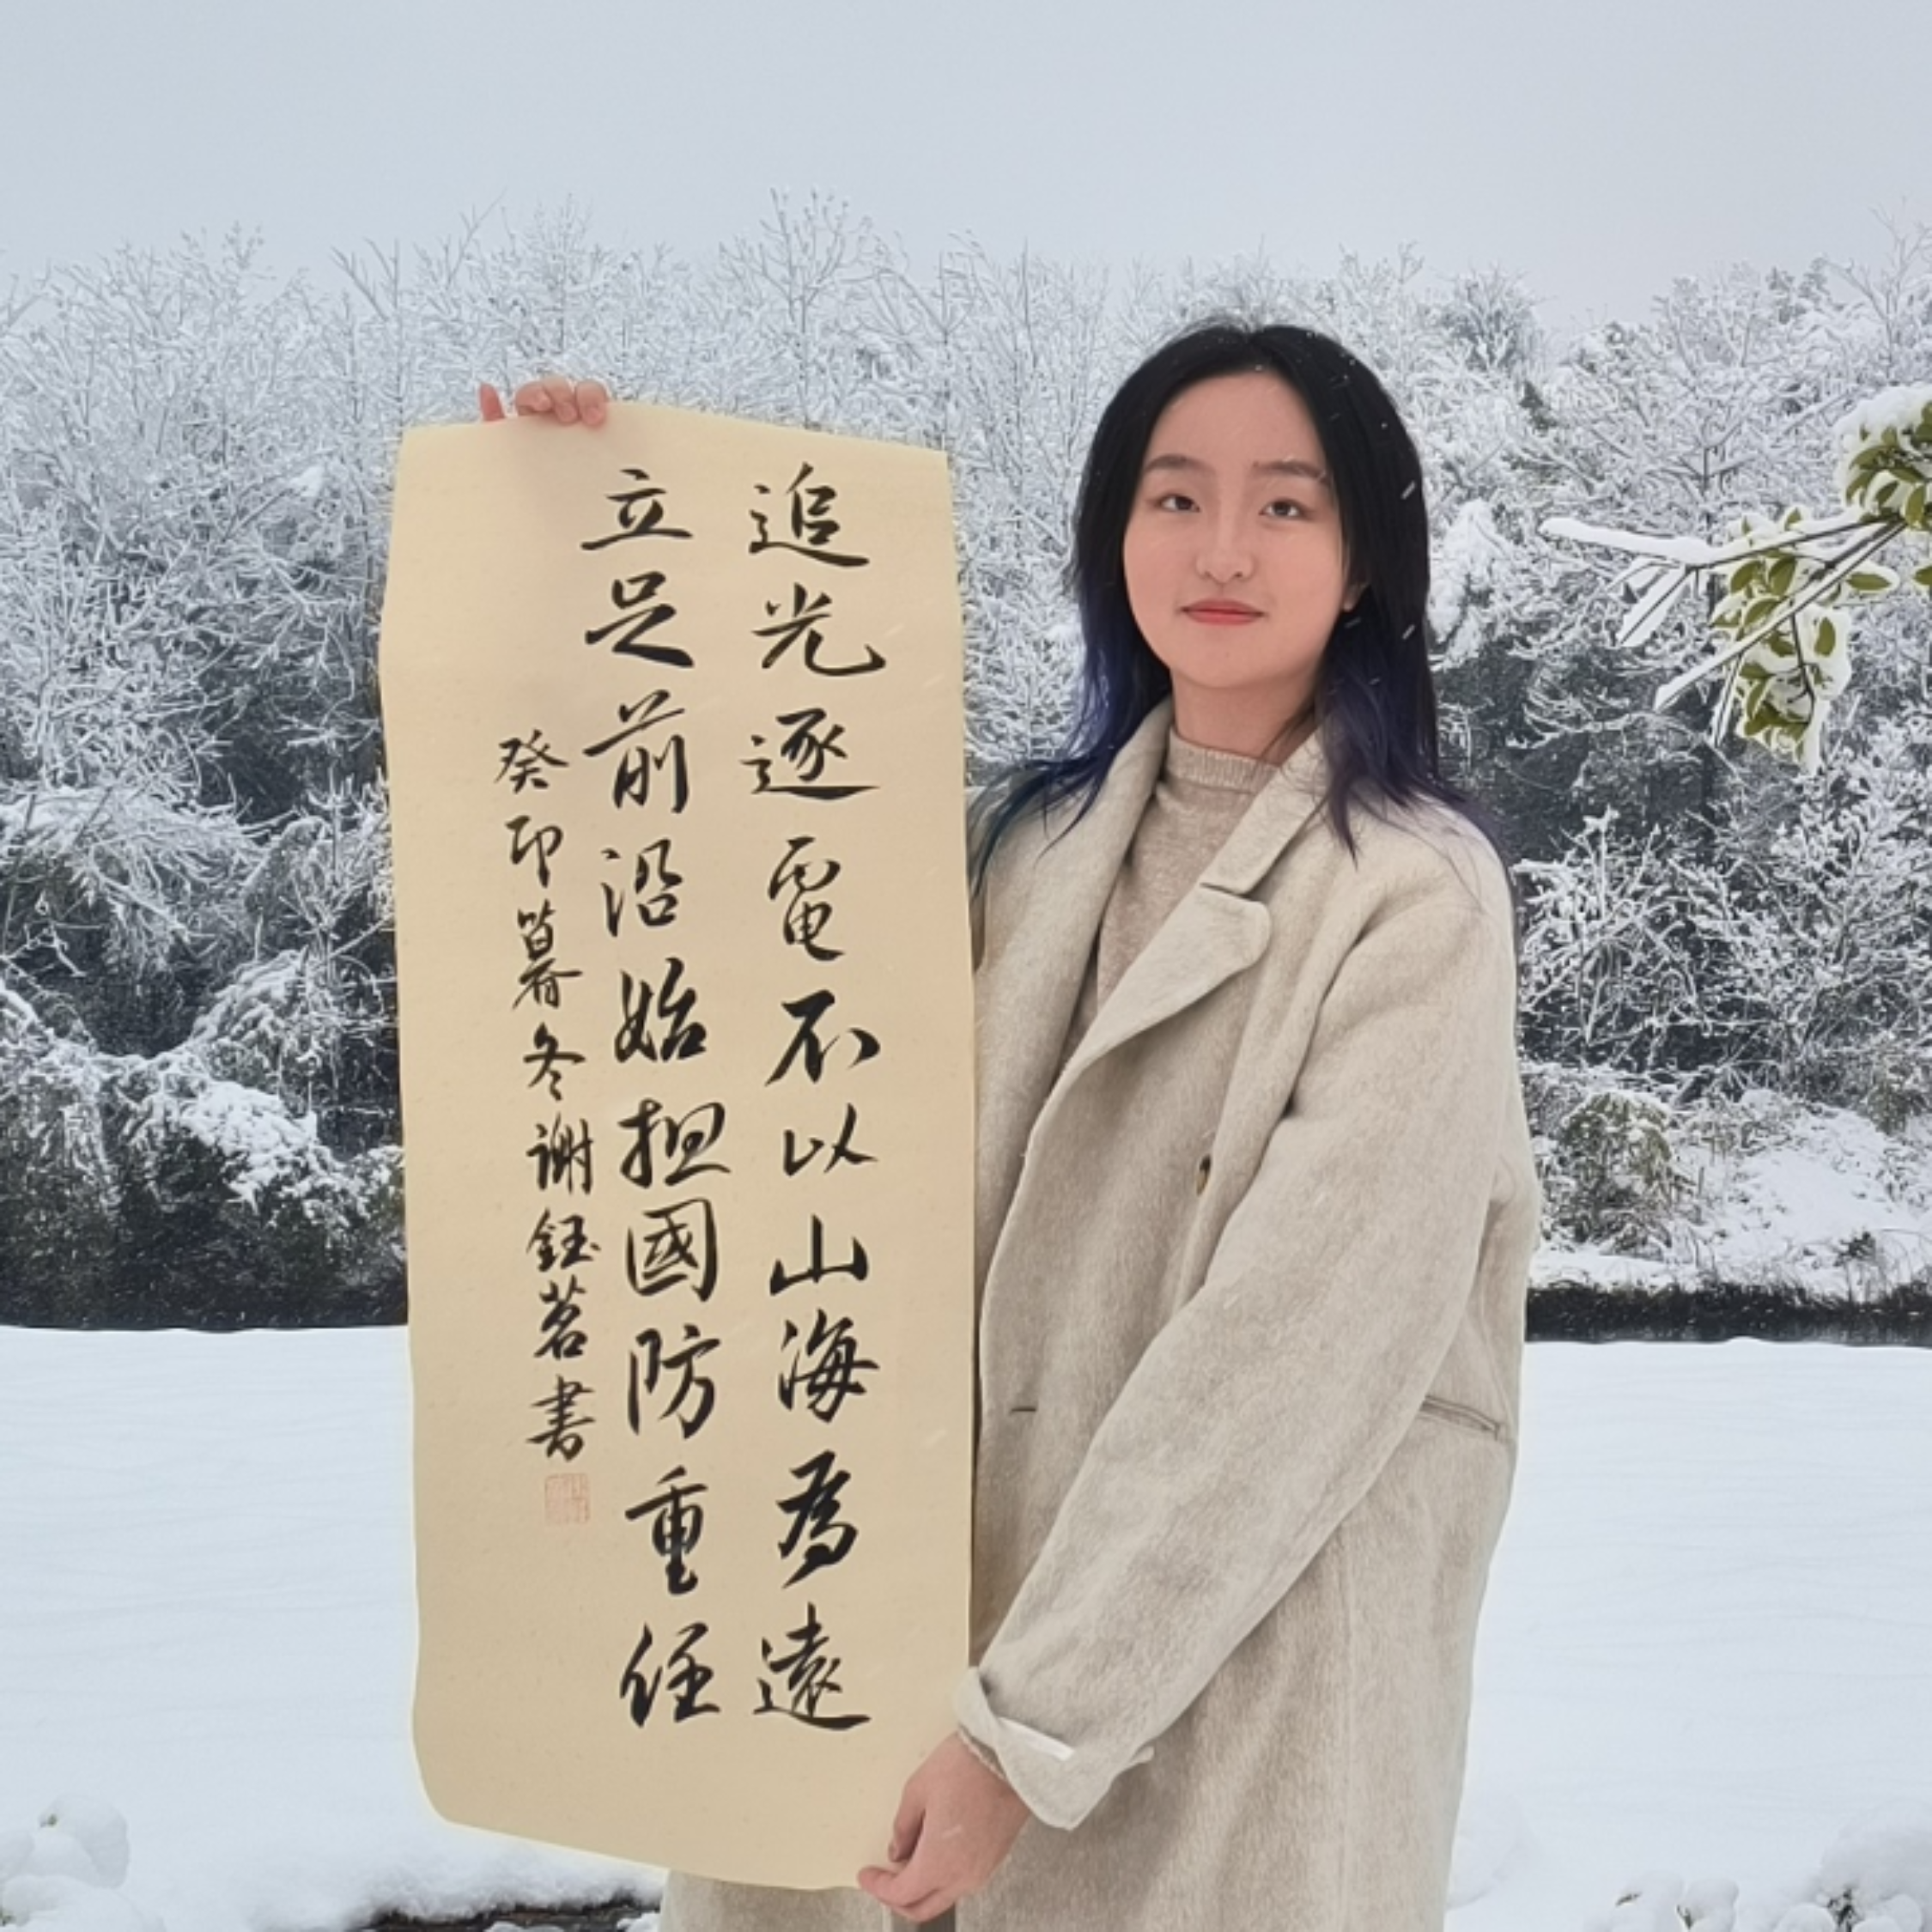 追光逐電不以山海為遠
立足前沿始担國防重任
癸卯暮冬謝鈺茗書